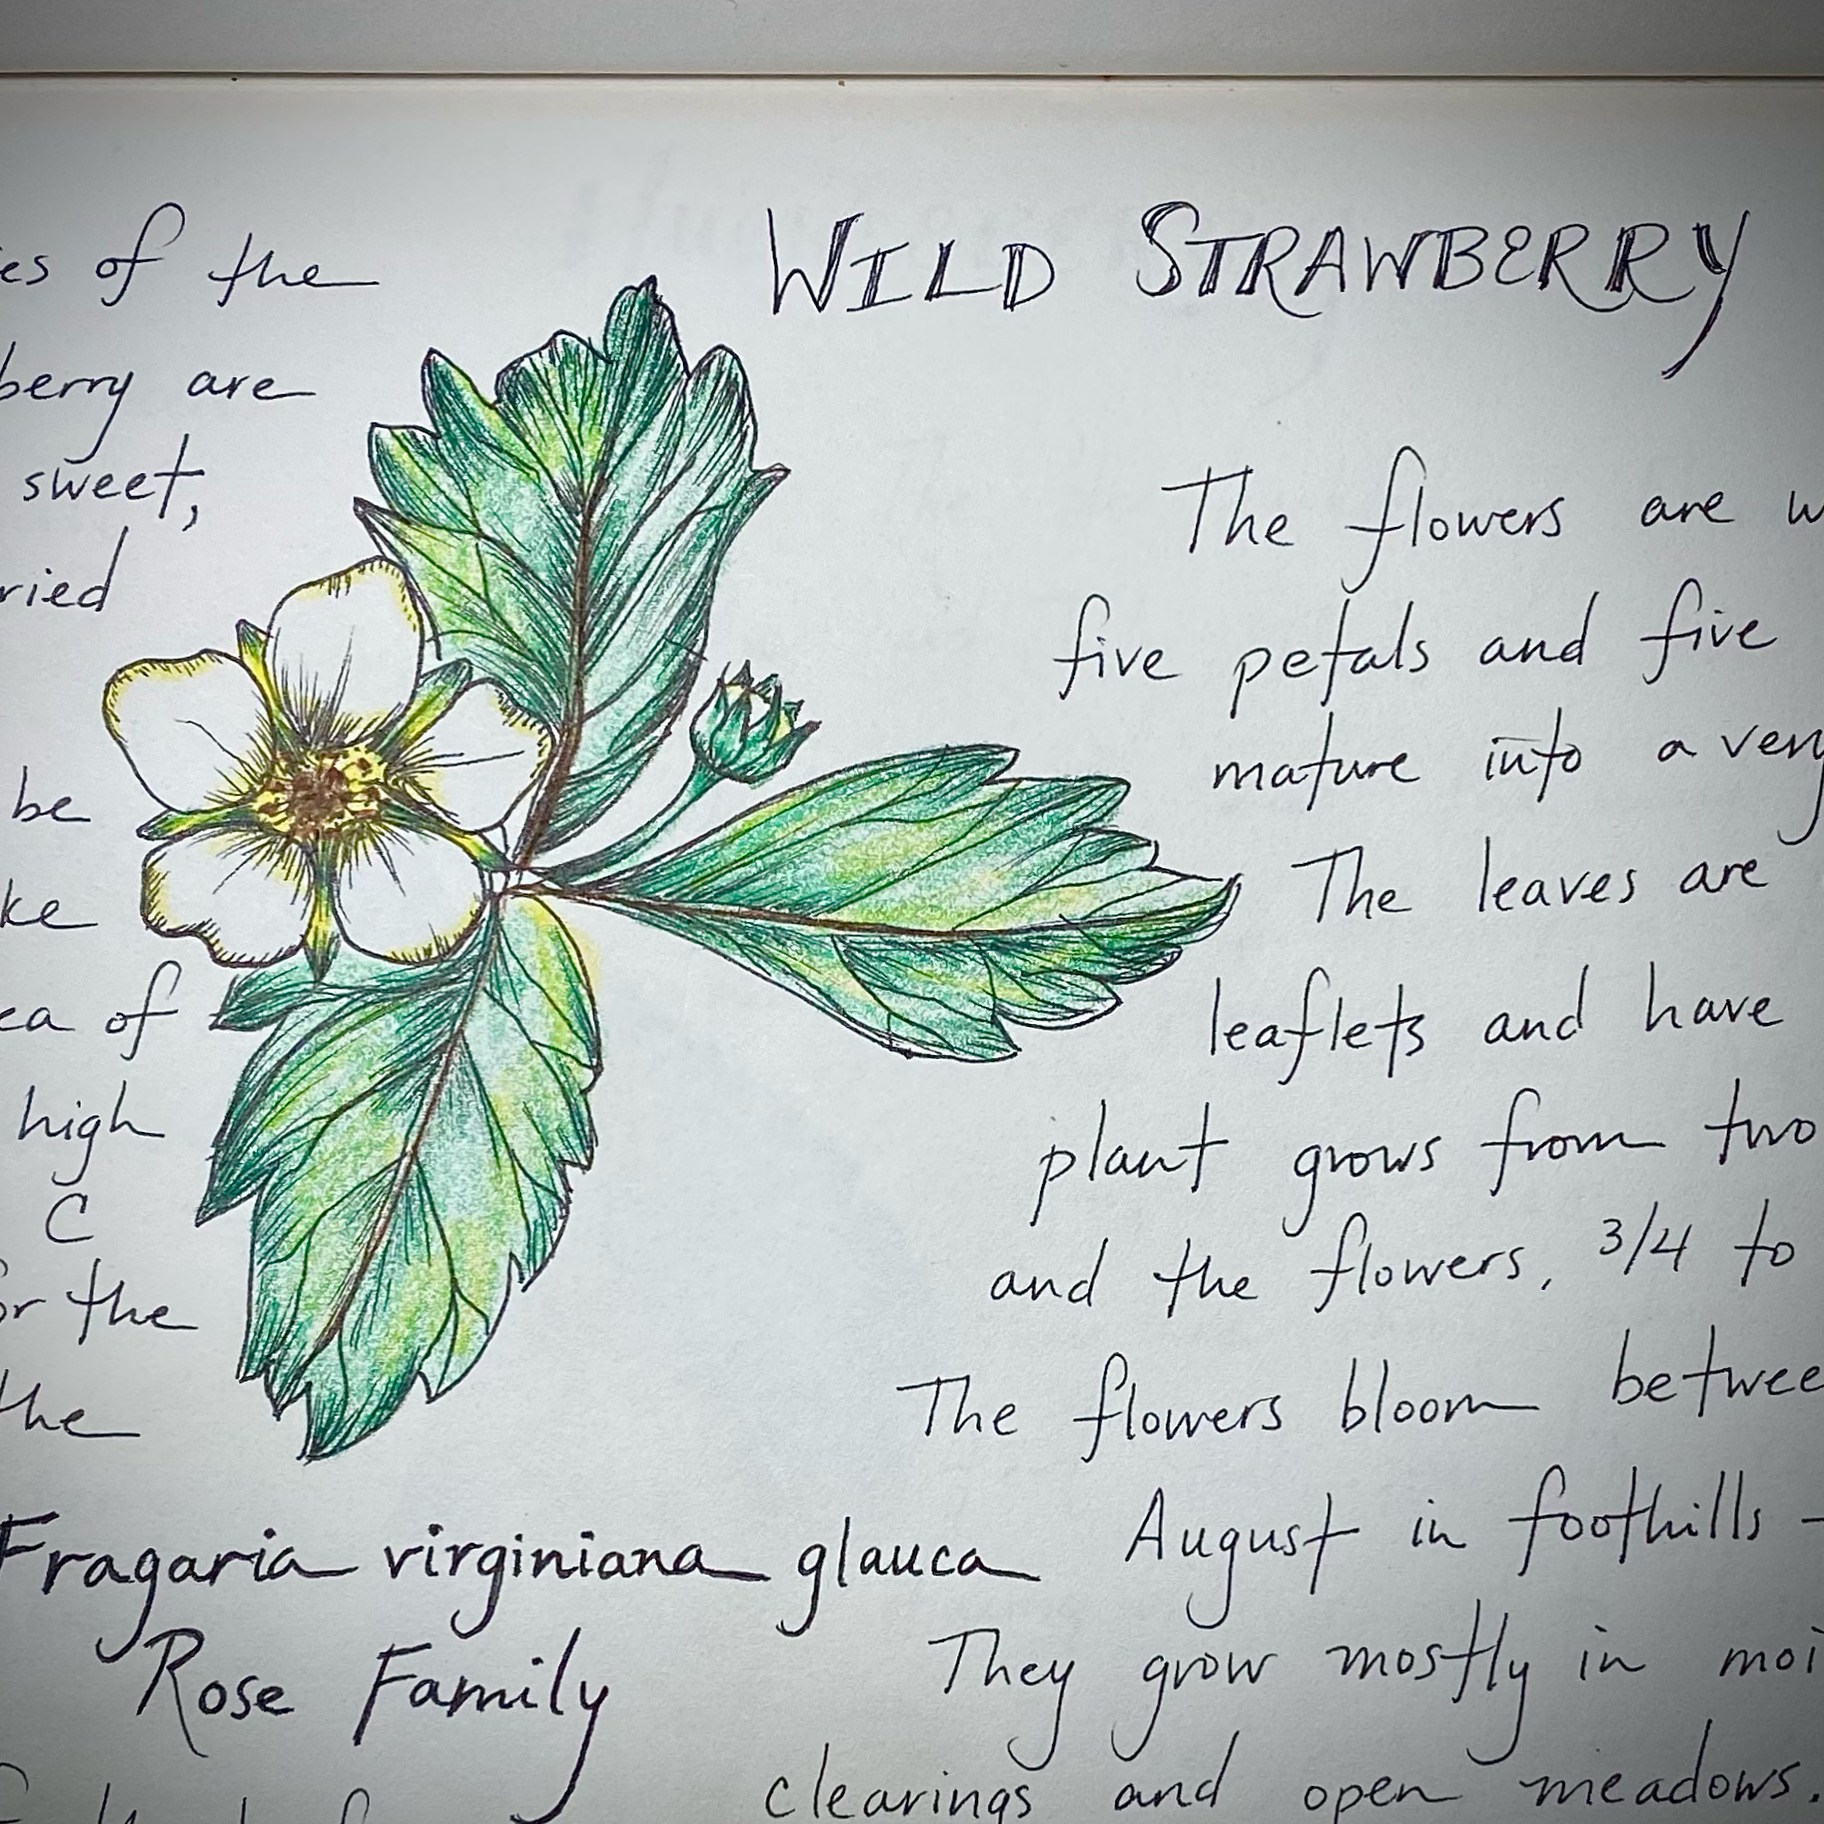 WILD STRAWBERRY
es of the
berry are
sweet,
ried
be
ke
ea of
high
C
or the
the
Fragaria virginiana glauca
Rose Family
The flowers are w
five petals and five
mature into a very
The leaves are
leaflets and have
plant grows from two
and the flowers, 3/4 to
The flowers bloom betwee
August in foothills -
They grow mostly in moi
clearings and open meadows.